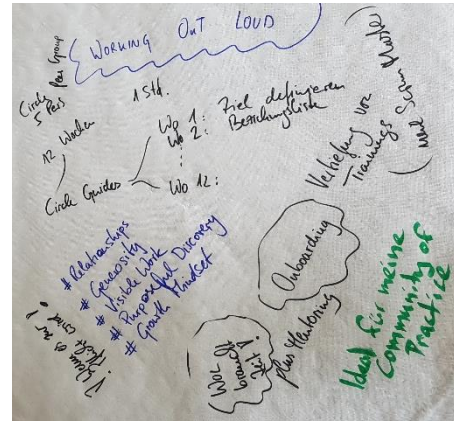 WORKING OUT LOUD
Peer Group
Circle
5 Pers
1 Std.
12 Wochen
Circle Guides
Wo 1: Ziel definieren
Wo 2: Beziehungsliste
⋮
Wo 12:
Vertiefung von
Trainings
(und Scrum Master)
# Relationships
# Generosity
# Visible Work
# Purposeful Discovery
# Growth Mindset
Onboarding
plus Mentoring
WOL
braucht
Zeit!
! Wenn es zur
Pflicht wird
Ideal für meine
Community of
Practice